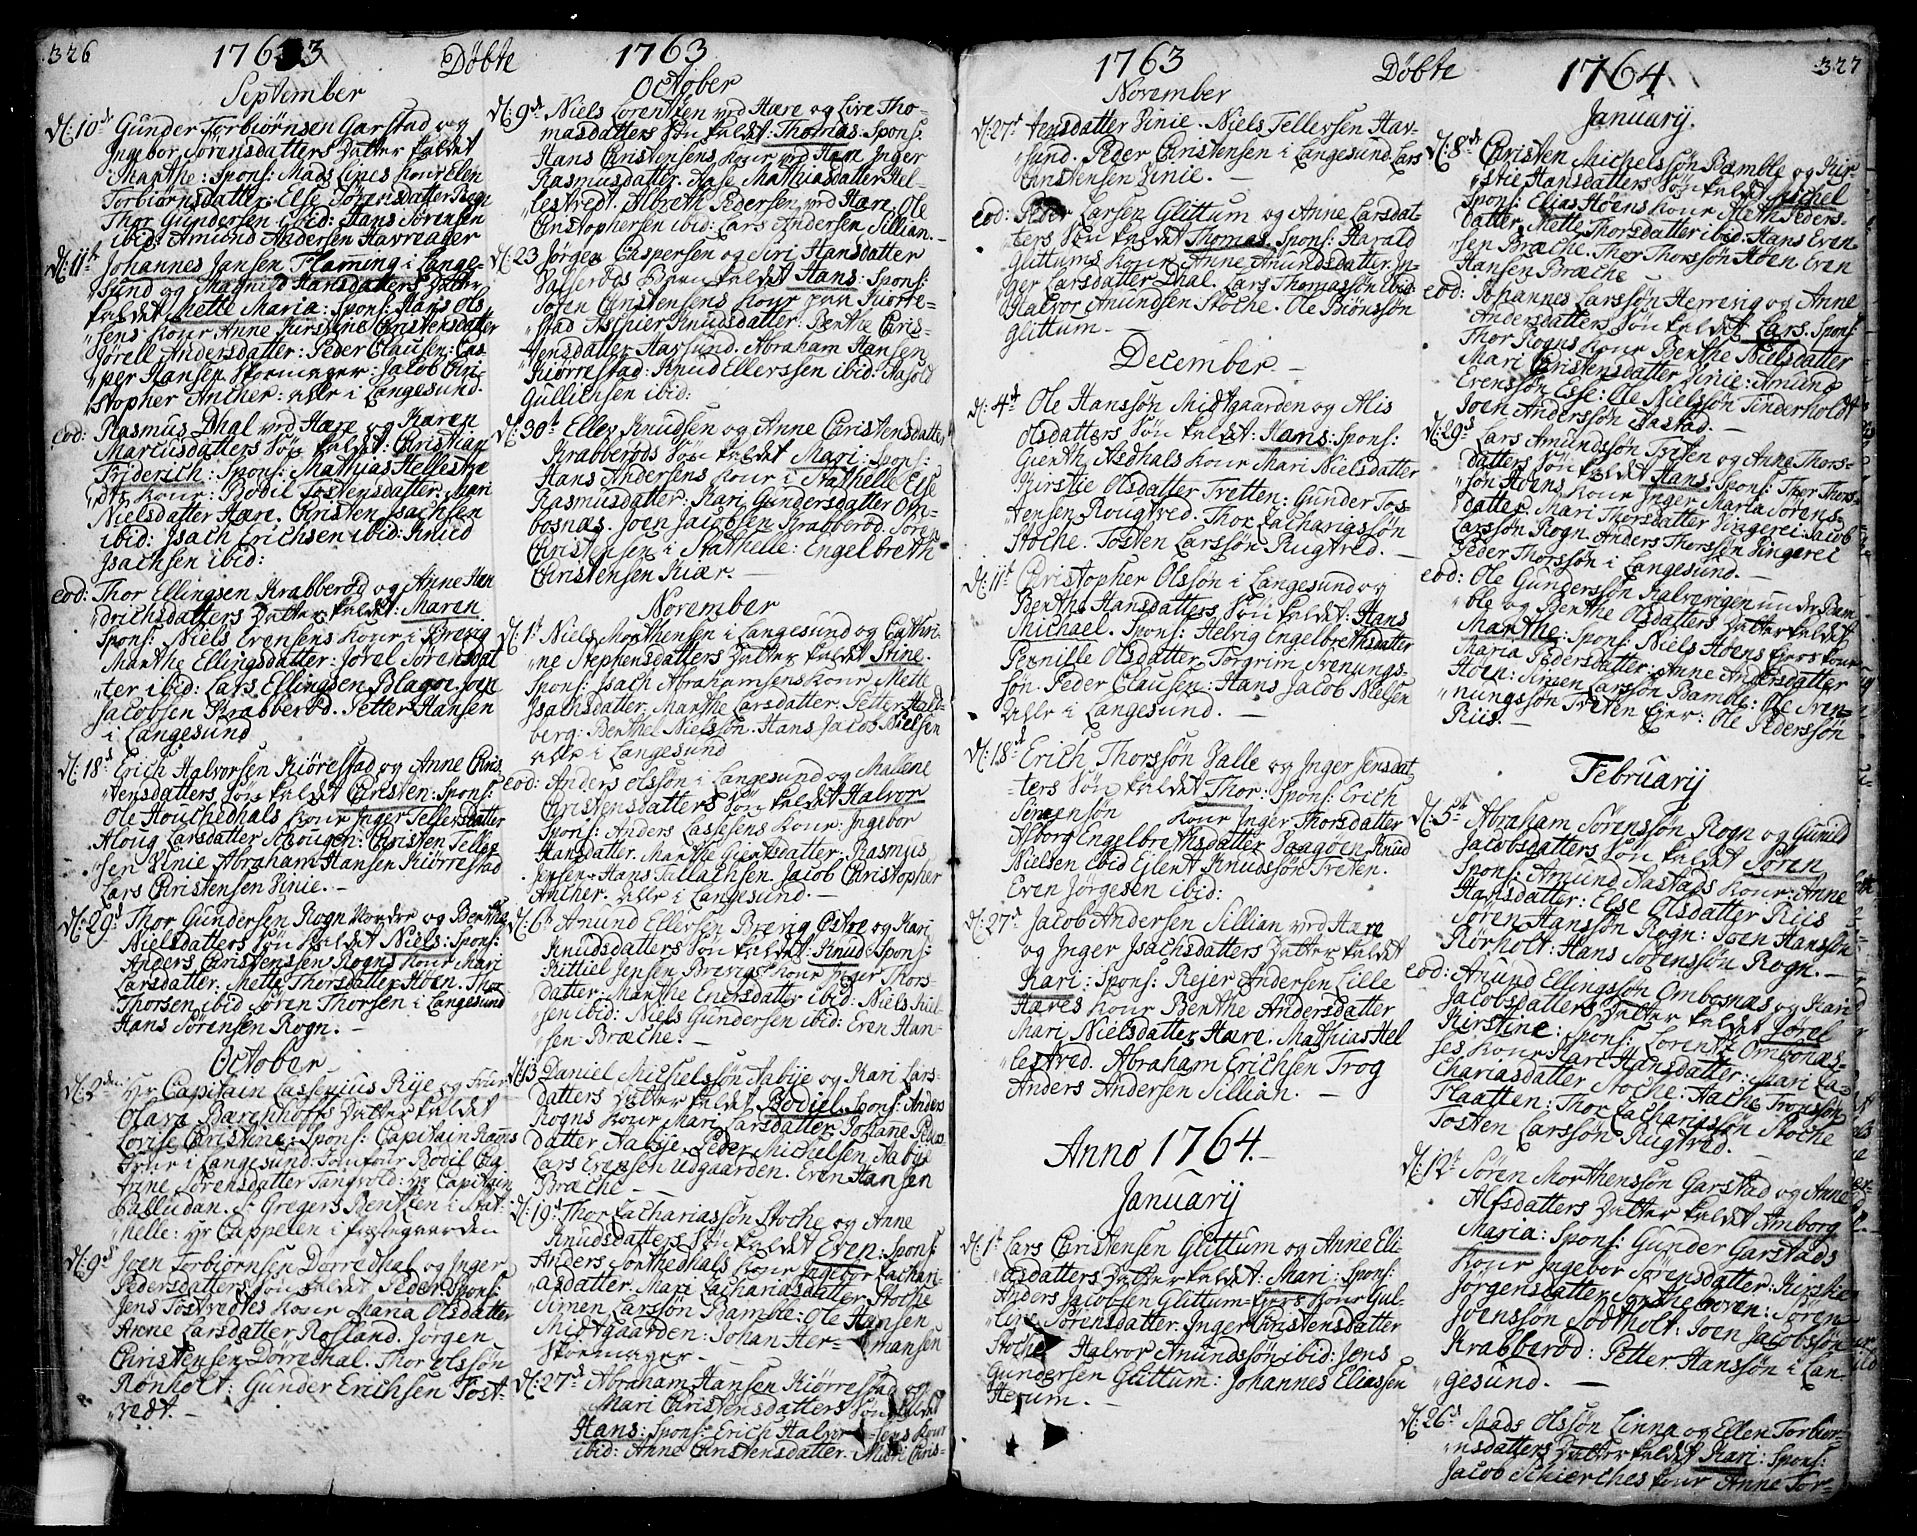 326
1763
Døbte
September
d: 10de Gunder Torbiørnsen Garstad og
Ingebor Sørensdatters Datter kaldet
Marthe: Spons: Mads Lines Kone Elen
Torbiørnsdatter: Else Sørensdatter Rogn
Thor Gundersen ibid: Hans Sørensen
ibid: Amund Andersen Havreager
d: 11te Johannes Jansen Flaming i Lange-
sund og Magnild Hansdatters Datter
kaldet Mette Maria: Spons: Hans Ols-
sens Kone Anne Kirstine Christensdatter
Jørell Andersdatter: Peder Clausen: Cas-
per Hansen Skomager: Jacob Chri-
stopher Ancher: alle i Langesund.
eod: Rasmus Dhal ved Hære og Karen
Marcusdatters Søn kaldet: Christian
Friderich: Spons: Mathias Hellestve
dts Kone: Bodil Tostensdatter. Mari
Nielsdatter Hære. Christen Jsachsen
ibid: Jsach Erichsen ibid: Knud
Jsachsen ibid:
eod: Thor Ellingsen Krabberød og Anne Hen
drichsdatters Datter kaldet: Maren
Spons: Niels Evensens Kone i Brevig
Marthe Ellingsdatter: Jørel Sørensdat
ter ibid: Lars Ellingsen Blagøe. Joen
Jacobsen Krabberød. Petter Hansen
i Langesund
d: 18de Erich Halvorsen Kiørestad og Anne Chris
tensdatters Søn kaldet Christen: Spons:
Ole Houchedhals Kone Inger Tellefsdatter
Aloug Larsdatter Schougen: Christen Tellef
sen Vinie Abraham Hansen Kiørrestad
Lars Christensen Vinie. –
d: 29d Thor Gundersen Rogn Nordre og Berthe
Nielsdatters Søn kaldet Niels: Spons:
Anders Christenssen Rogns Kone Mari
Larsdatter. Mette Thorsdatter Høen. Thor
Thorsen ibid Søren Thorsen i Langesund
Hans Sørensen Rogn. –
October
d: 2den: Hr Capitain Lassenius Rye og Fruer
Olava Barenhoffs Datter kaldet
Lovise Christine: Spons: Capitain Ramms
Frue i Langesund: Jomfrue Bodil Ca
trine Sørensdatter Tangvold: Hr Capitain
Palludan. Sr Gregers Bentsen i Stat-
helle: Hr Cappelen i præstegaarden
d: 9d Joen Torbiørnsen Dørredhal og Inger
Pedersdatters Søn kaldet Peder. Spons:
Jens Tostvedtes Kone Maria Olsdatter
Anne Larsdatter Rosland. Jørgen
Christensen Dørredhal. Thor Olssøn
Rønholt: Gunder Erichsen Tost-
vedt. –
1763
October
d: 9de Niels Lorentsen ved Hære og Live Tho-
masdatters Søn kaldet: Thomas. Spons:
Hans Christensens Kone ved Hære Inger
Rasmusdatter. Aase Mathiasdatter Hel-
lestved. Albreth Pedersen ved Hære. Ole
Christophersen ibid: Lars Andersen Sillian. –
d: 23 Jørgen Caspersen og Siri Hansdatter
Valleröes Barn kaldet Hans: Spons:
Joren Christensens Kone paa Kiørre-
stad Aschier Knudsdatter: Berthe Chris-
tensdatter Haxsund. Abraham Hansen
Kiørrestad: Knud Ellevssen ibid: Aasold
Gullichsen ibid:
d: 30t Ellev Knudsen og Anne Christensdatter
Krabberøds Søn kaldet Mari: Spons:
Hans Andersens Kone i Stathelle Else
Rasmusdatter: Kari Gundersdatter Om-
bosnæs. Joen Jacobsen Krabberød. Søren
Christensen i Stathelle: Engelbreth
Christensen Kiær. –
November
d: 1t Niels Morthensen i Langesund og Cathri-
ne Stephensdatters Datter kaldet Stine.
Spons: Jsach Abrahamsens Kone Mette
Jsachsdatter: Marthe Larsdatter. Petter Hald-
berg: Berthel Nielssøn. Hans Jacob Nielsen
alle i Langesund
eod: Anders Olssøn i Langesund og Mallene
Christensdatters Søn kaldet Halvor
Spons: Anders Lassesens Kone: Ingebor
Hansdatter. Marthe Giertsdatter: Rasmus
Jensen. Hans Zillachsen. Jacob Christopher
Ancher. Alle i Langesund. –
d: 6te Anund Ellevsen Brevig Østre og Kari
Knudsdatters Søn kaldet: Knud: Spons:
Kittiel Jensen Brevigs Kone Inger Thors-
datter: Marthe Enersdatter ibid: Niels Kiil-
sen ibid: Niels Gundersen ibid: Even Han-
sen Bræche. –
d: 13 Daniel Michelssøn Aabye og Kari Lars-
datters Datter kaldet Bodiel. Spons: Anders
Rogns Kone Mari Larsdatter. Johane Peders
datter Aabye. Peder Michelsen Aabye
Lars Evensen Udgaarden. Even Hansen
Bræche –
d: 19d Thor Zachariassøn Stoche og Anne
Knudsdatters Søn kaldet Even: Spons:
Anders Jonthedhals Kone Ingebor Zachari-
asdatter. Mari Zachariasdatter Stoche
Simen Larssøn Bamble: Ole Hansen
Midtgaarden: Johan Her-mansen
Skomager –
d: 27d Abraham Hansen Kiørrestad og
Mari Christensdatters Søn kaldet
Hans: Spons: Erich Halvor-sens Kone
ibid: Anne Christensdatter. Mari Chris-
1763
Døbte
November
d: 27t tensdatter Vinie. Niels Tellevsen Hav-
sund. Peder Christensen i Langesund. Lars
Christensen Vinie. –
eod: Peder Larsen Glittum og Anne Larsdat-
ters Søn kaldet Thomas. Spons: Harald
Glittums Kone Anne Amundsdatter. In-
ger Larsdatter Dhal. Lars Thomassøn ibid:
Halvor Amundsen Stoche. Ole Biønssøn
Glittum. –
December. –
d: 4de Ole Hanssøn Midtgaarden og Alis
Olsdatters Søn kaldet: Hans: Spons:
Gierth Asdhals Kone Mari Nielsdatter
Kirstie Olsdatter Tretten: Gunder Tos-
tensen Rougtved. Thor Zachariassøn
Stoche. Tosten Larssøn Rugtved. –
d: 11te Christopher Olssøn i Langesund og
Berthe Hansdatters Søn kaldet: Hans
Michael. Spons: Helvig Engelbrethsdatter
Pernille Olsdatter. Torgrim Svenungs-
søn. Peder Clausen: Hans Jacob Nielsen
Alle i Langesund. –
d: 18d Erich Thorssøn Valle og Inger Jensdat
ters Søn kaldet Thor: Spons: Erich
Simensøn Kone Inger Thorsdatter
Alborg Engelbrethsdatter Vaagøen. Knud
Nielsen ibid Ejlent Knudssøn Treten.
Even Jørgesen ibid:
d: 27de Jacob Andersen Sillian ved Hære
og Inger Jsachsdatters Datter kaldet
Kari: Spons: Rejer Andersen Lille
Hæres Kone Berthe Andersdatter
Mari Nielsdatter Hære. Mathias Hel
lestved. Abraham Erichsen Trog
Anders Andersen Sillian. –
Anno 1764. –
Januarij
d: 1t Lars Christensen Glittum og Anne Eli-
asdatters Datter kaldet: Mari: Spons:
Anders Jacobsen Glittum Ejers Kone Gul-
lene Sørensdatter. Inger Christensdatter
Stoche. Halvor Amundssøn ibid: Jens
Gundersen Glittum: Johannes Eliassen
Herum. –
1764
327
Januarij.
d: 8de Christen Michelssøn Bamble og Kir
stie Hansdatters Søn kaldet Michel
Spons: Elias Høens Kone Aleth Peders-
datter. Mette Thorsdatter ibid: Hans Even
sen Bræche. Thor Thorssøn Høen. Even
Hansen Bræche
eod: Johannes Larssøn Herrevig og Anne
Andersdatters Søn kaldet Lars. Spons:
Thor Rogns Kone Berthe Nielsdatter
Mari Christensdatter Vinie: Amund
Evenssøn Esse: Ole Nielssøn Tinderholdt
Joen Anderssøn Aastad. –
d: 29d Lars Amundssøn Treten og Anne Thors-
datters Søn kaldet Hans: Spons: Thor Thors-
søn Høens Kone Inger Maria Sørens-
datter. Mari Thorsdatter Fingerei: Jacob
Larssøn Rogn. Anders Thorssen Fingerei
Peder Thorssøn i Langesund. –
eod: Ole Gunderssøn Halverigen under Bam
ble og Berthe Olsdatters Datter kaldet
Marthe: Spons: Niels Høens Ejers Kone
Maria Pedersdatter: Anne Andersdatter
Høen: Simen Larssøn Bamble: Ole Sven-
nungssøn Treten Ejer: Ole Pederssøn
Riis. –
Februarij
d: 5te Abraham Sørenssøn Rogn og Gunild
Jacobsdatters Søn kaldet Søren
Spons: Amund Aastads Kone: Anne
Hansdatter: Else Olsdatter Riis
Søren Hanssøn Rogn: Joen Hanssøn
Rørholt: Hans Sørenssøn Rogn. –
eod: Anund Ellingssøn Ombosnæs og Kari
Jacobsdatters Datter kaldet Jørel
Kirstine: Spons: Lorentz Ombonæs-
ses Kone Kari Hansdatter: Mari Za-
chariasdatter Stoche: Aache Tronssøn
Flaatten: Thor Zachariassøn Stoche
Tosten Larssøn Rugtved. –
d: 12te Søren Morthenssøn Garstad og Anne
Alfsdatters Datter kaldet Amborg
Maria: Spons: Gunder Garstads
Kone Ingebor Sørensdatter: Kirstie
Jørgensdatter Sørtheboven: Søren
Joenssøn Sødtholt: Joen Jacobssøn
Krabberød: Petter Hanssøn i Lan-
gesund. –
d: 26d Mads Olssøn Linna og Ellen Torbiør-
nsdatters Datter kaldet Kari: Spons:
Jacob Schierches Kone Anne Tor-